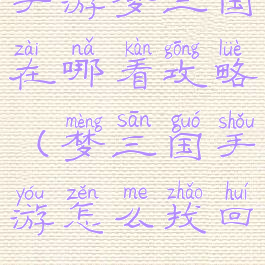 手游梦三国
zài nǎ kàn gōng lüè
在哪看攻略
mèng sān guó shǒu
（梦三国手
yóu zěn me zhǎo huí
游怎么找回